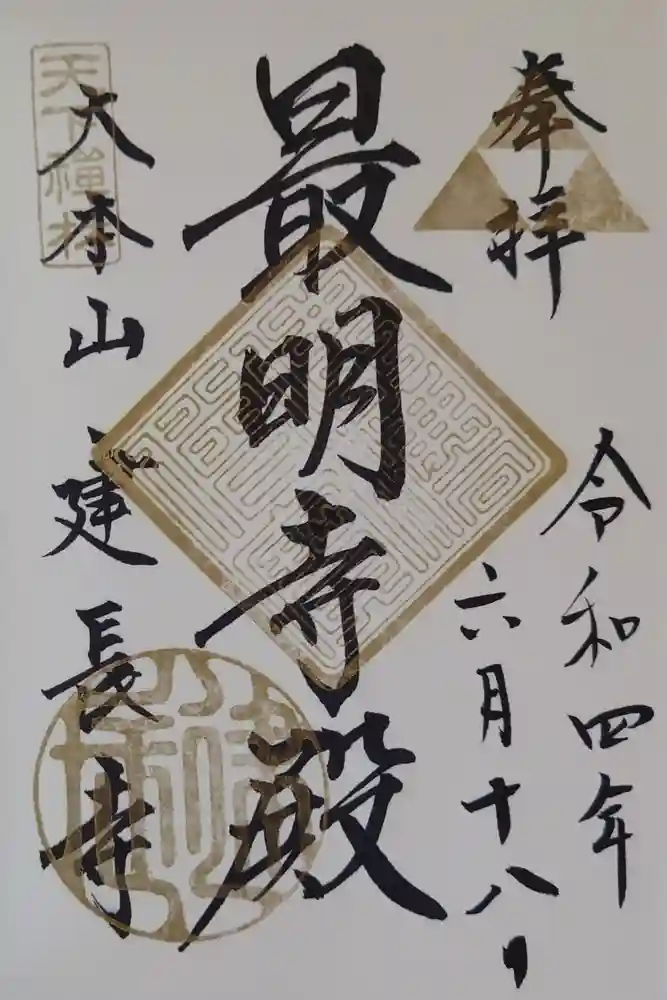 奉拝
令和四年
六月十八日
最明寺殿
天下禅林
大本山建長寺